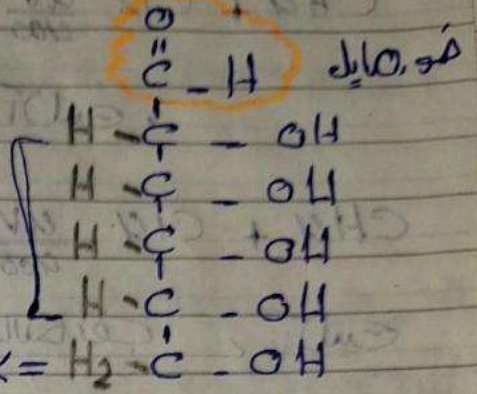 O
||
C - H فورمایل
H - C - OH
H - C - OH
H - C - OH
H - C - OH
= H₂ - C - OH